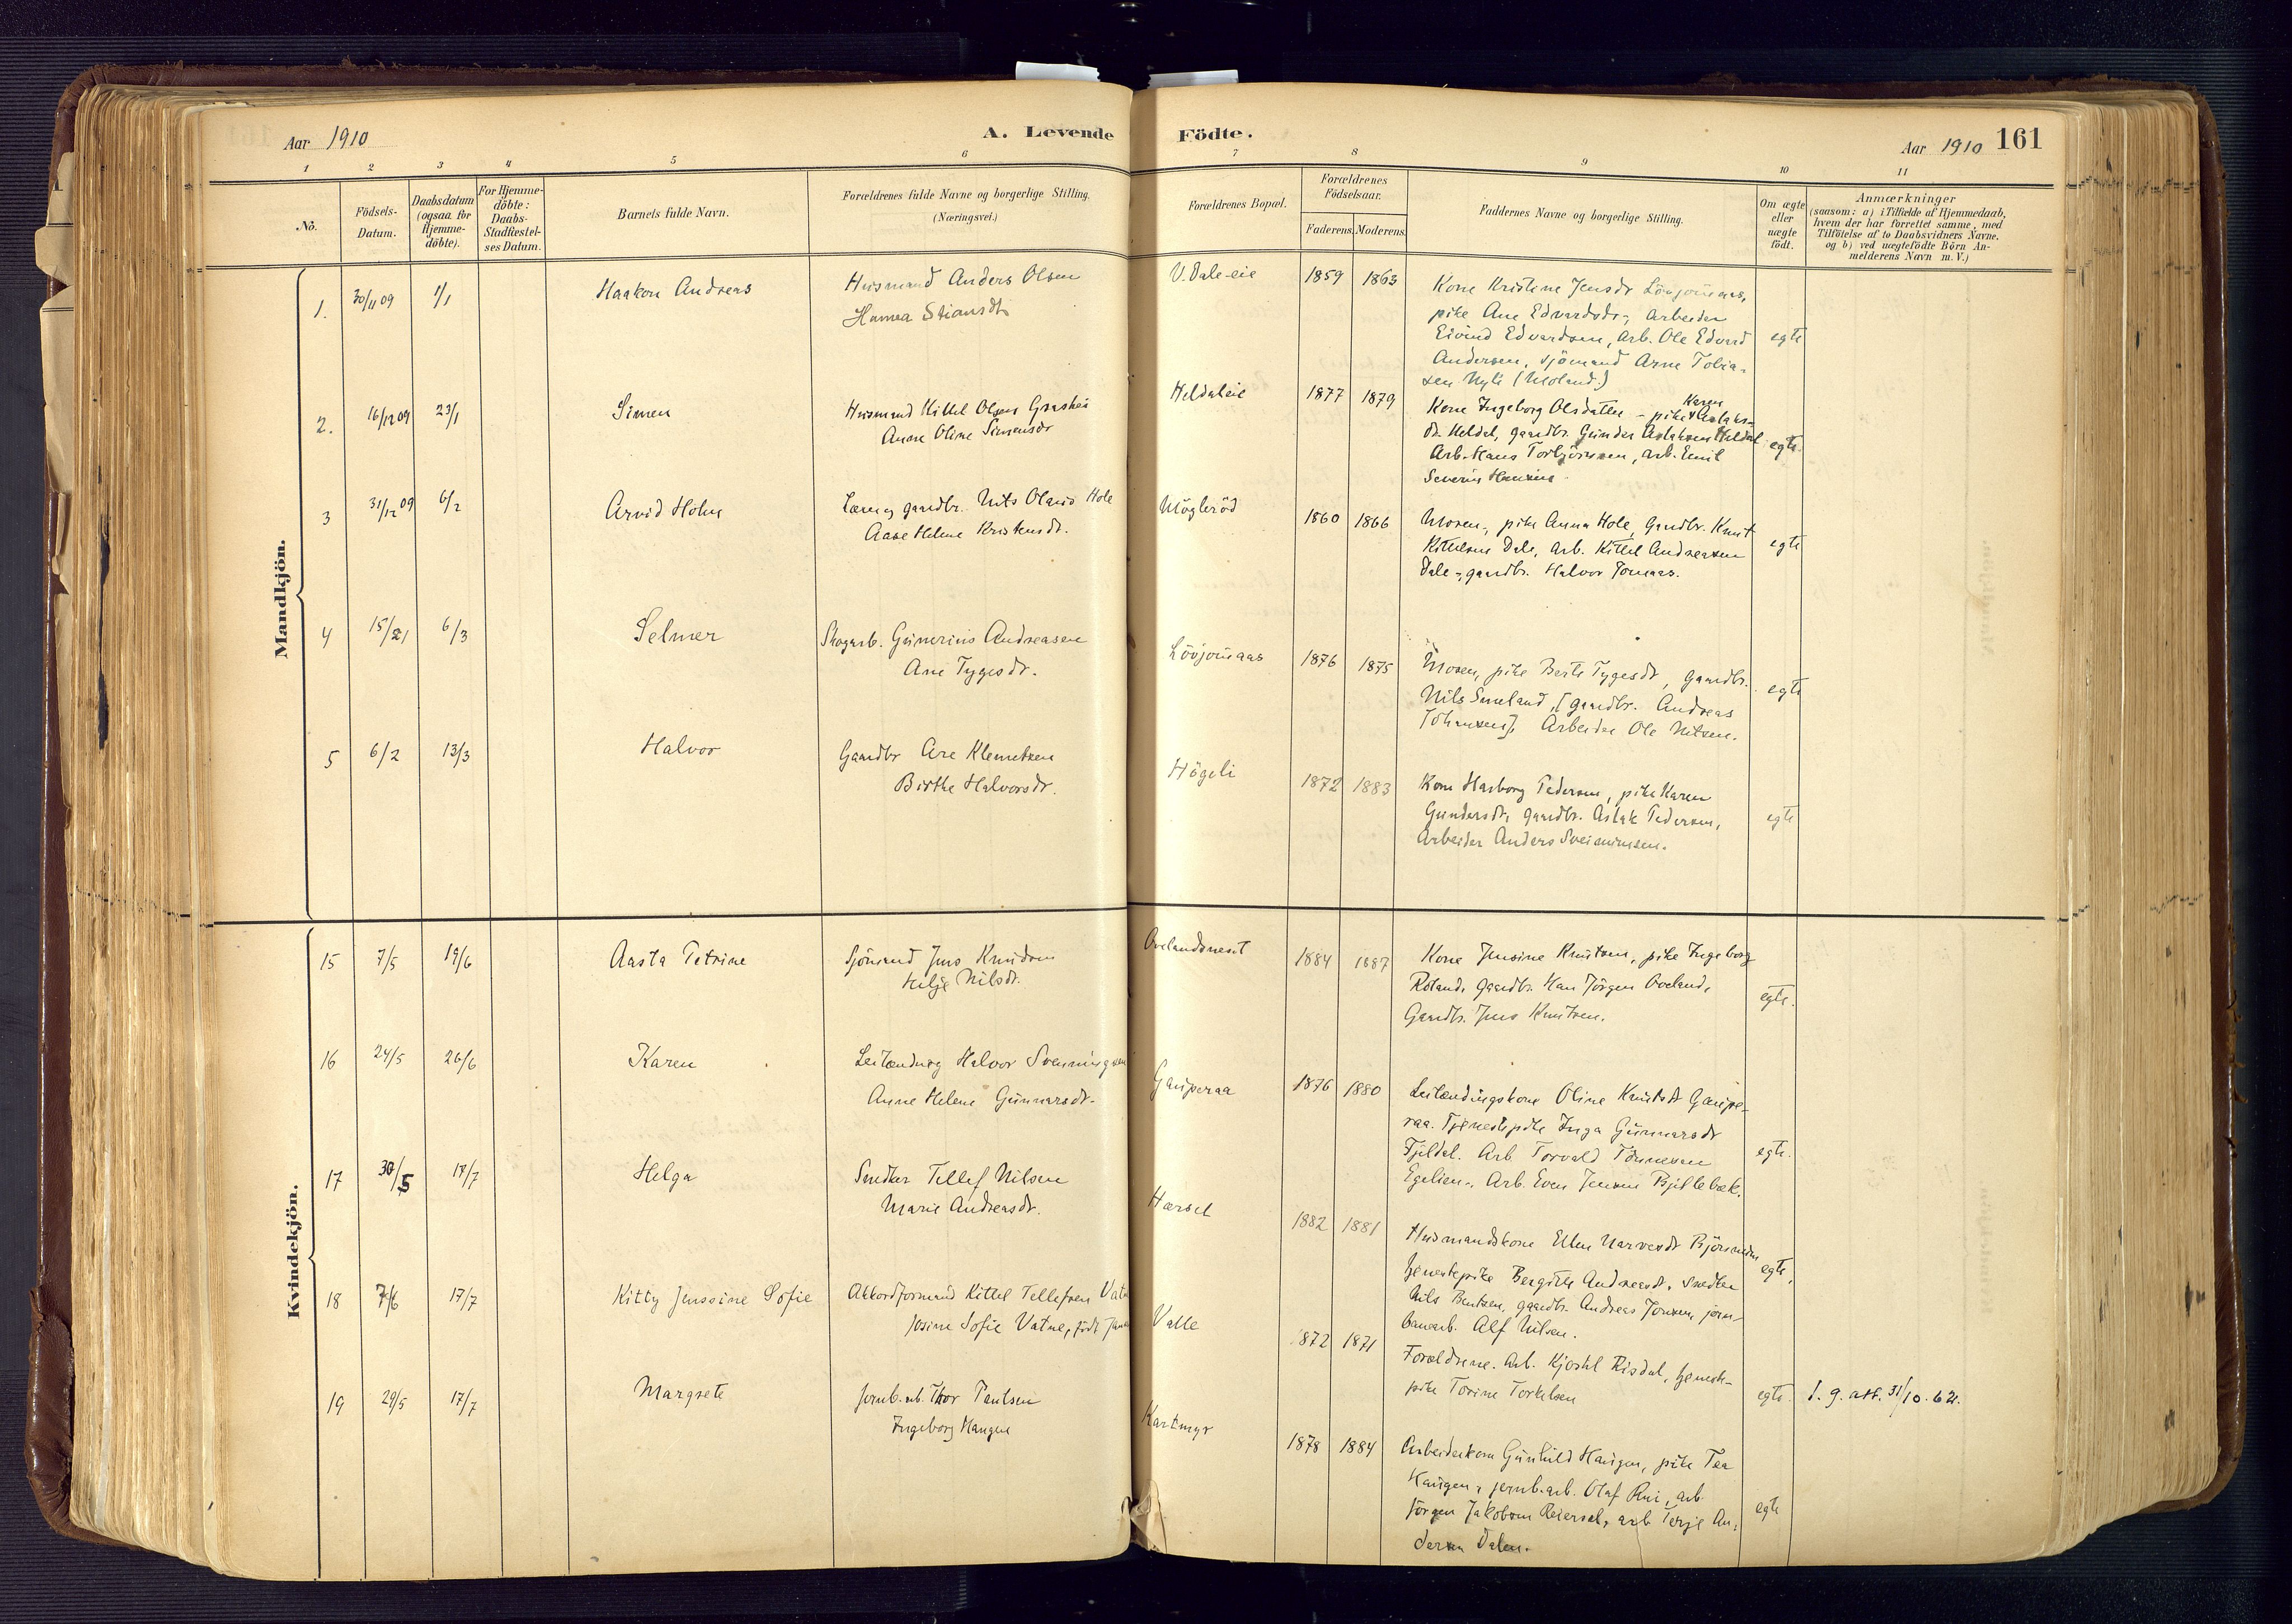 Aar 1910
A. Levende Födte.
Aar 1910 161
1 2 3 4 5 6 7 8 9 10 11
No.
Födsels-
Datum.
Daabsdatum
(ogsaa for
Hjemme-
döbte).
For Hjemme-
döbte:
Daabs-
Stadfæstel-
ses Datum.
Barnets fulde Navn.
Forældrenes fulde Navne og borgerlige Stilling.
(Næringsvei.)
Forældrenes Bopæl.
Forældrenes
Födselsaar.
Faderens. Moderens.
Faddernes Navne og borgerlige Stilling.
Om ægte
eller
uægte
födt.
Anmærkninger
(saasom: a) i Tilfælde af Hjemmedaab,
hvem der har forrettet samme, med
Tilföielse af to Daabsvidners Navne.
og b) ved uægtefödte Börn An-
melderens Navn m. V.)
Mandkjön.
1. 30/11 09 1/1 Haakon Andreas
Husmand Anders Olsen
Stiansdtr
V. Dale-eie 1859 1863
Kone Kristine Jensdr Lövjomaas,
pike Ane Edvardsdr, Arbeider
Eivind Edvardsen, arb. Ole Edvard
Andersen, sjömand Arne Tobia-
sen (Moland.)
egte
2. 16/12 09 23/1 Simen
Husmand Kittel Olsen Grashei
Anne Oline Simensdr
Heldaleie 1877 1879
Kone Ingeborg Olsdatter - pike Karen Aslaks-
dr. Heldal, gaardbr. Gunder Aslaksen Heldal
Arb. Hans Torbjörnsen, arb. Emil
Severin
egte.
3 31/12 09 6/2 Arvid Holm
gaardbr. Nils Olaus Hole
Aase Helene Kristensdr.
Mögleröd 1860 1866
Moren, pike Anna Hole, Gaardbr. Knut
Kittelsen Dale, arb. Kittel Andreassen
Dale, gaardbr. Halvor Jomaas.
egte
4 15/1 6/3 Selmer
Skogarb. Gunerius Andreasen
Ane Tygesdr.
Lövjomaas 1876 1875
Moren, pike Berte Tygesdr, gaardbr.
Nils Smeland, [gaardbr. Andreas
Johansen], Arbeider Ole Nilsen.
egte
5 6/2 13/3 Halvor
Gaardbr Are Klemetsen
Birthe Halvorsdr.
Högeli 1872 1883
Kone Hasborg Pedersen, pike Karen
Gundersdr, gaardbr. Aslak Pedersen,
Arbeider Anders
egte
Kvindekjön.
15 7/5 19/6 Aasta Petrine
Sjömand Jens Knudsen
Nilsdr.
Ovelandsneset 1884 1887
Kone Jensine Knutsen, pike Ingeborg
Roland, gaardbr. Jörgen Oveland,
Gaardbr. Jens Knutsen.
egte.
16 24/5 26/6 Karen
Leilænding Halvor Svenningsen
Anne Helene Gunnarsdr.
Gauperaa 1876 1880
Leilændingskone Oline Knutsdr Gaupe-
raa. Tjenestepike Inga Gunnarsdr
Fjeldal. Arb Torvald Tönnesen
Egelien, Arb. Even Jensen
egte.
17 30/5 17/7 Helga
Snedker Tellef Nilsen
Marie Andreasdr.
Hærsel 1882 1881
Husmandskone Ellen Narvesdr
tjenestepike Bergitte Andreasdr, snedker
Nils Bentsen, gaardbr. Andreas Jonsen, jern-
banearb. Alf Nilsen.
egte,
18 7/6 17/7 Kitty Jenssine Sofie
Akkordformand Kittel Tellefsen
Josine Sofie Vatne, födt
Valle 1872 1871
Forældrene. Arb. Kjøstel Risdal, tjeneste-
pike Torine Torkelsen
egte. l. g. att. 31/10. 62.
19 29/5 17/7 Margrete
Jernb. arb. Thor Paulsen
Ingeborg Haugen
Kartmyr 1878 1884
Arbeiderkone Gunhild Haugen, pike Tea
Haugen, jernb.arb. Olaf Rui, arb.
Jörgen Jakobsen Reiersøl, arb Terje An-
dersen Dalen.
egte